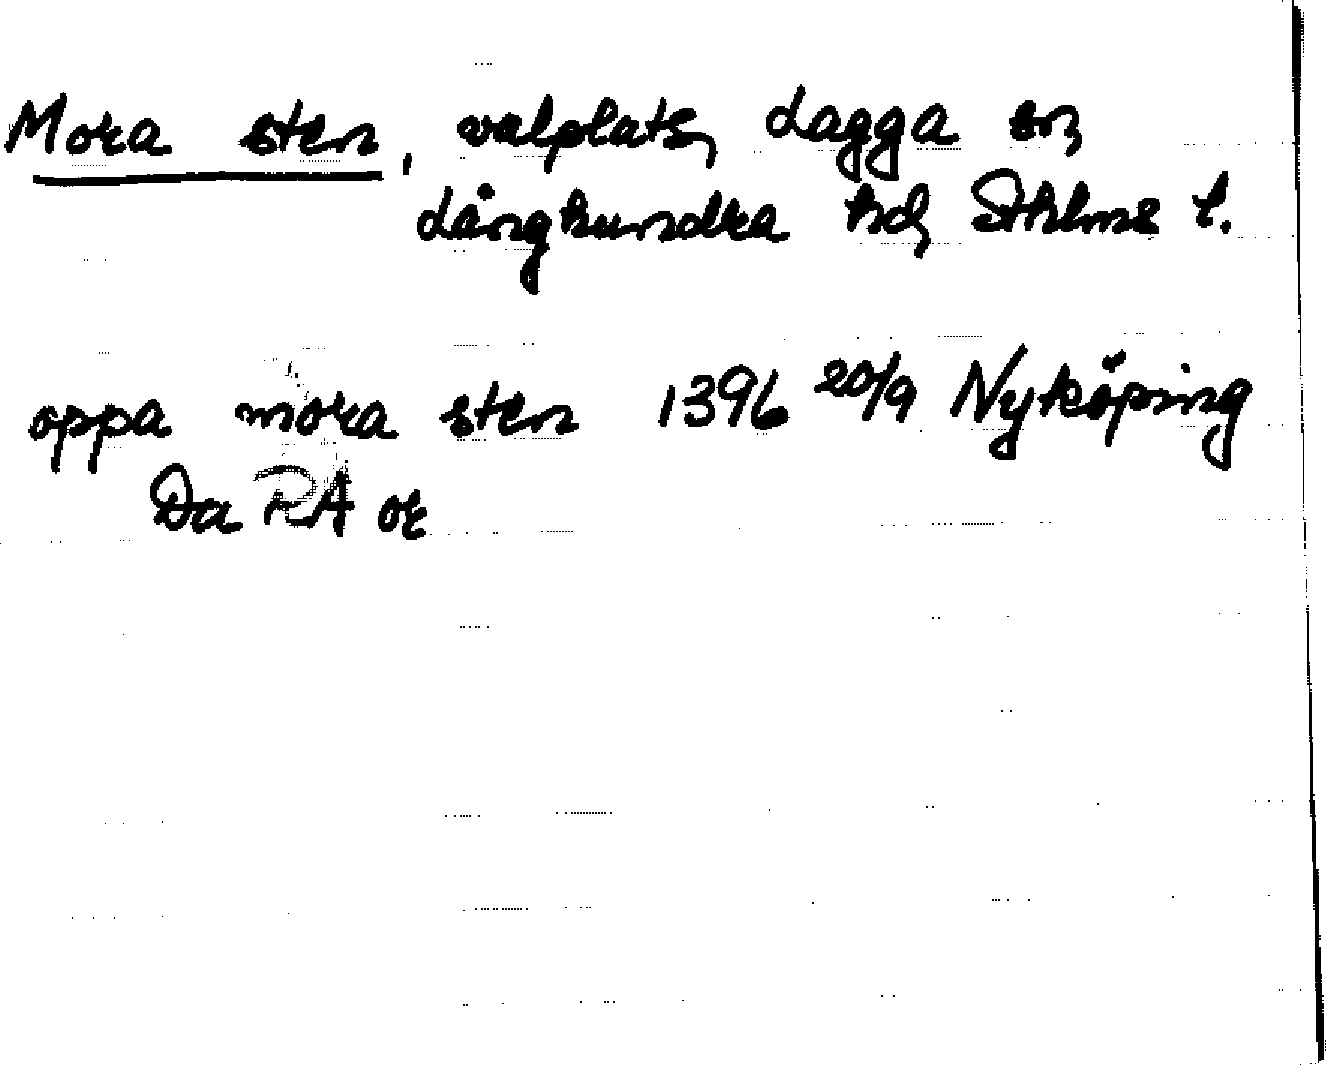 Mora sten, valplats, Lagga sn,
Långhundra hd, Sthlms l.
oppa mora sten 1396 20/9 Nyköping
Da RA or